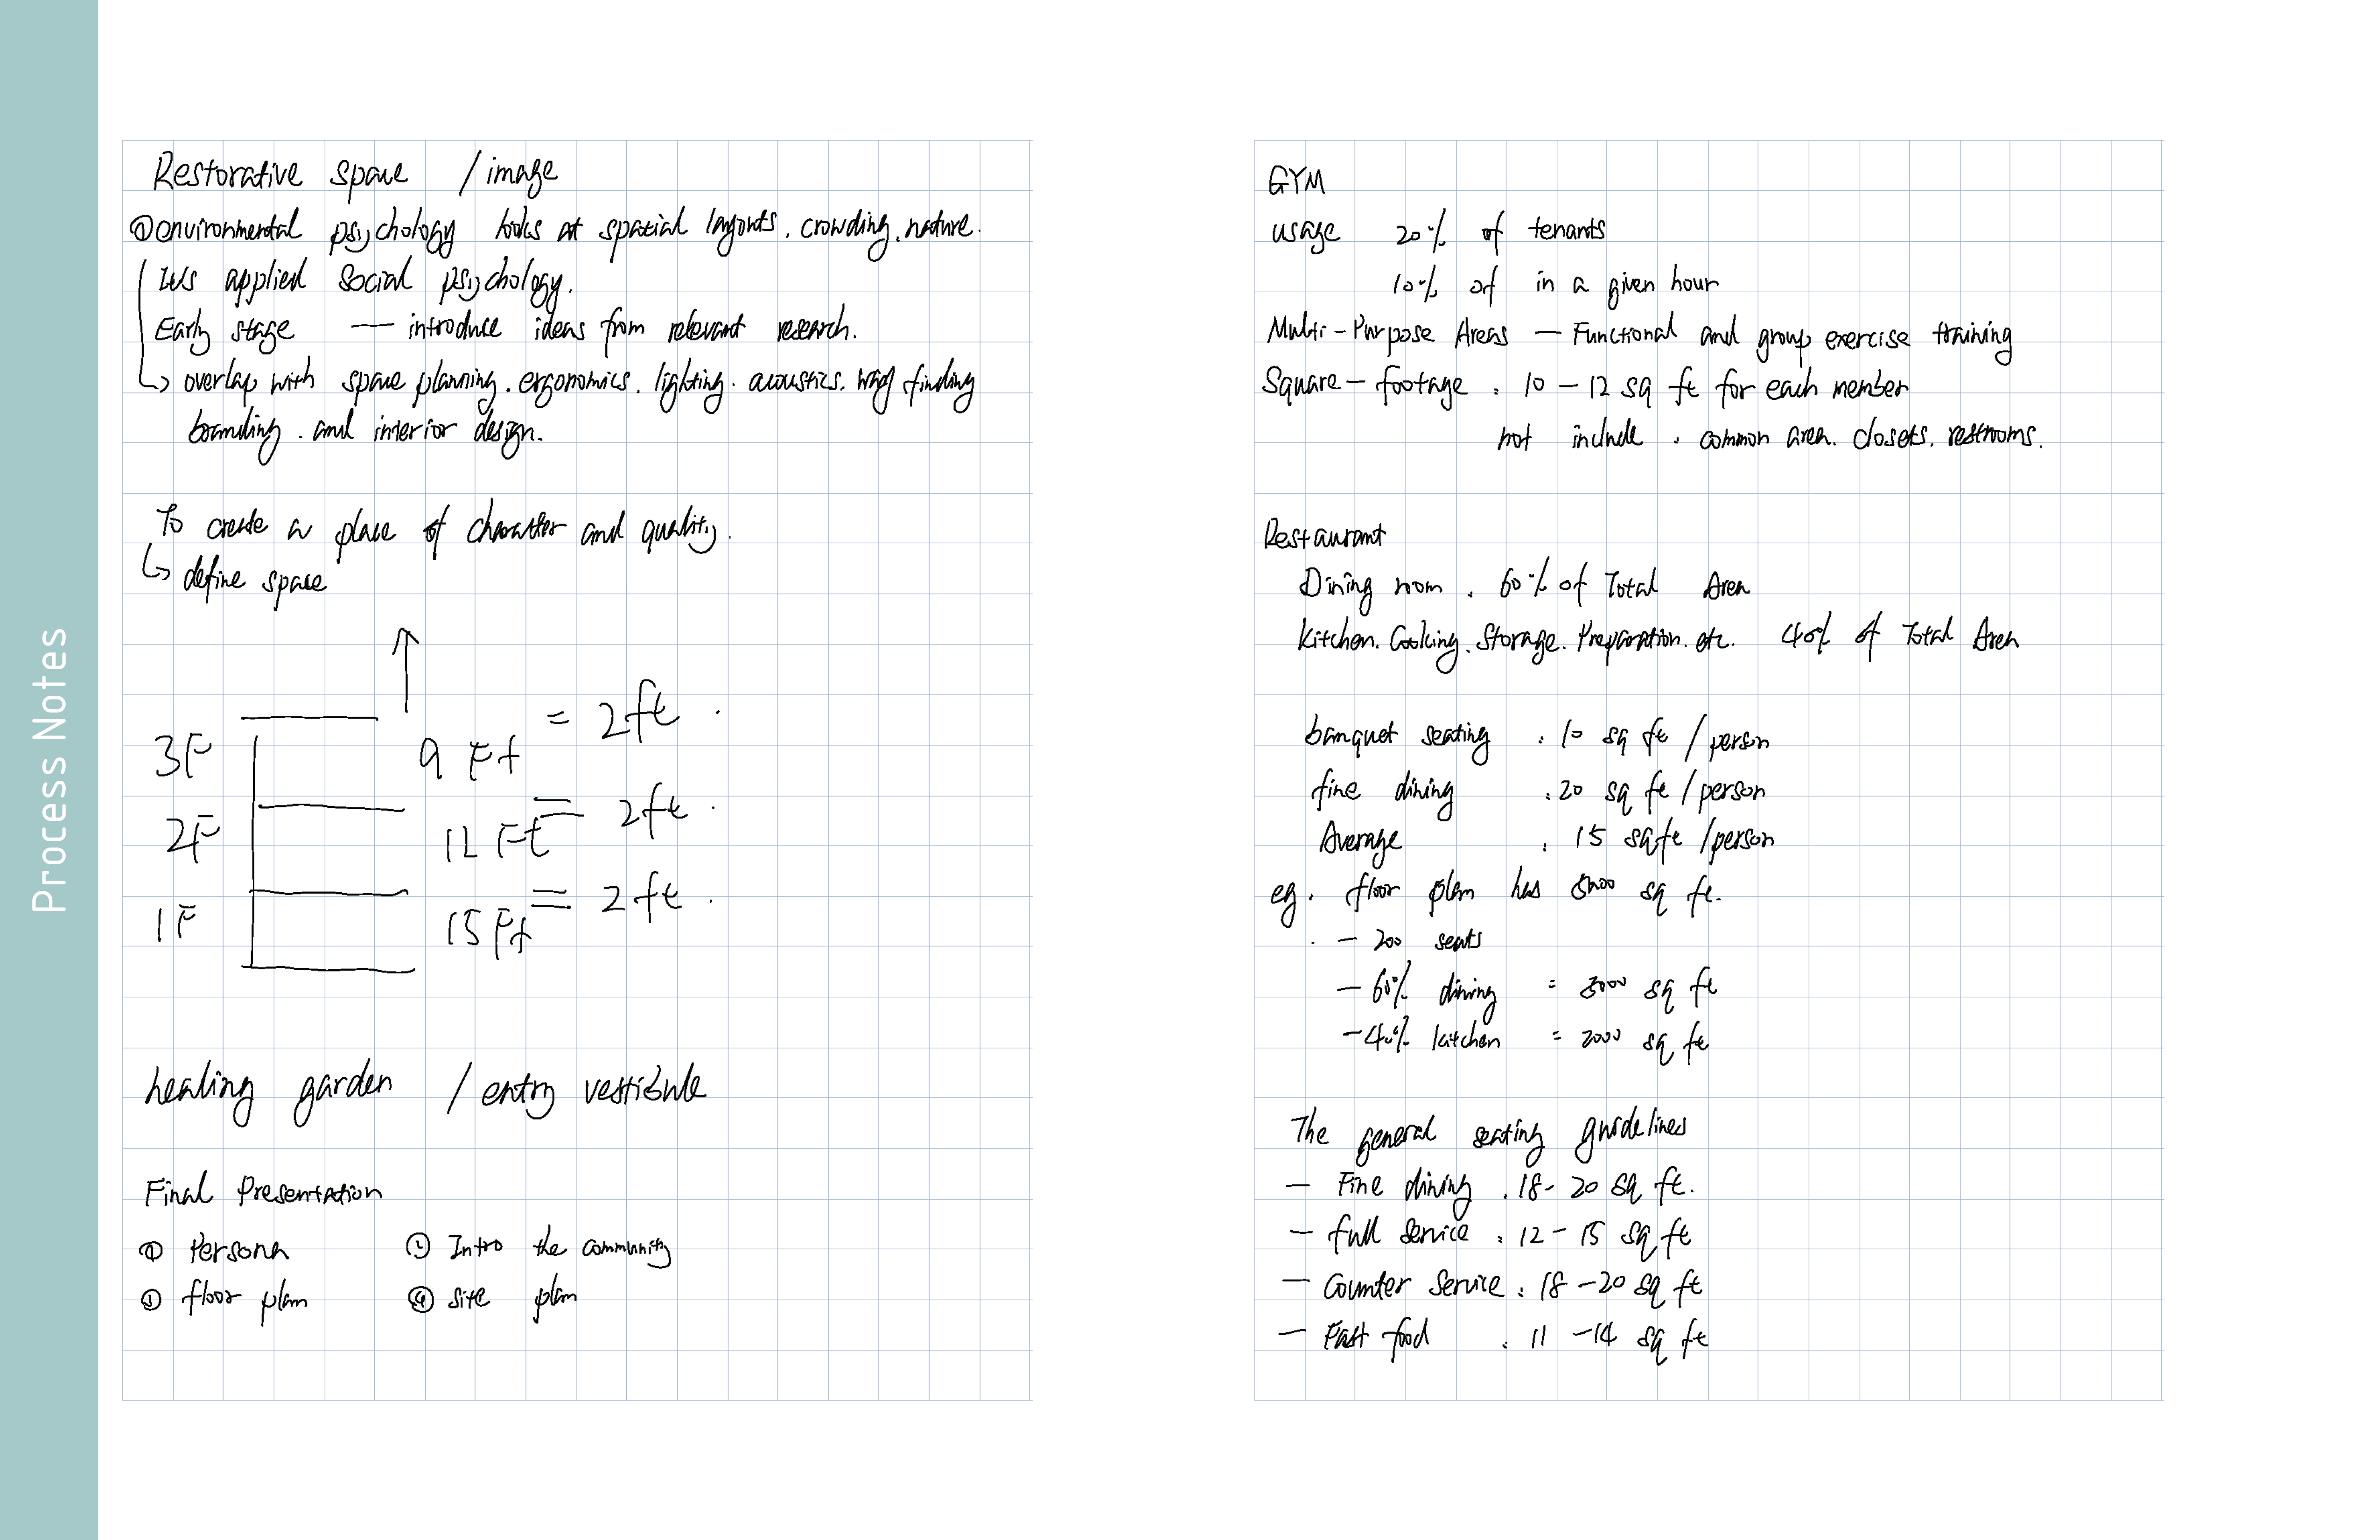 Process Notes
Restorative space / image
① environmental psychology looks at spatial layouts. crowding. nature.
It's applied social psychology.
Early stage — introduce ideas from relevant research.
↳ overlap with space planning. ergonomics. lighting. acoustics. way finding
branding. and interior design.
To create a place of character and quality.
↳ define space
3F 9 Ft = 2ft.
2F 12 Ft = 2ft.
1F 15 Ft = 2ft.
healing garden / entry vestibule
Final Presentation
① Persona ② Intro the community
③ floor plan ④ site plan
GYM
usage 20% of tenants
10% of in a given hour
Multi-Purpose Areas — Functional and group exercise training
Square-footage : 10 - 12 sq ft for each member
not include : common area. closets. restrooms.
Restaurant
Dining room : 60% of Total Area
Kitchen. Cooking. Storage. Preparation. etc. 40% of Total Area
banquet seating : 10 sq ft / person
fine dining : 20 sq ft / person
Average : 15 sq ft / person
eg. floor plan has 5000 sq ft.
- 200 seats
- 60% dining = 3000 sq ft
- 40% kitchen = 2000 sq ft
The general seating guidelines
- Fine dining : 18 - 20 sq ft.
- full service : 12 - 15 sq ft
- Counter service : 18 - 20 sq ft
- Fast food : 11 - 14 sq ft